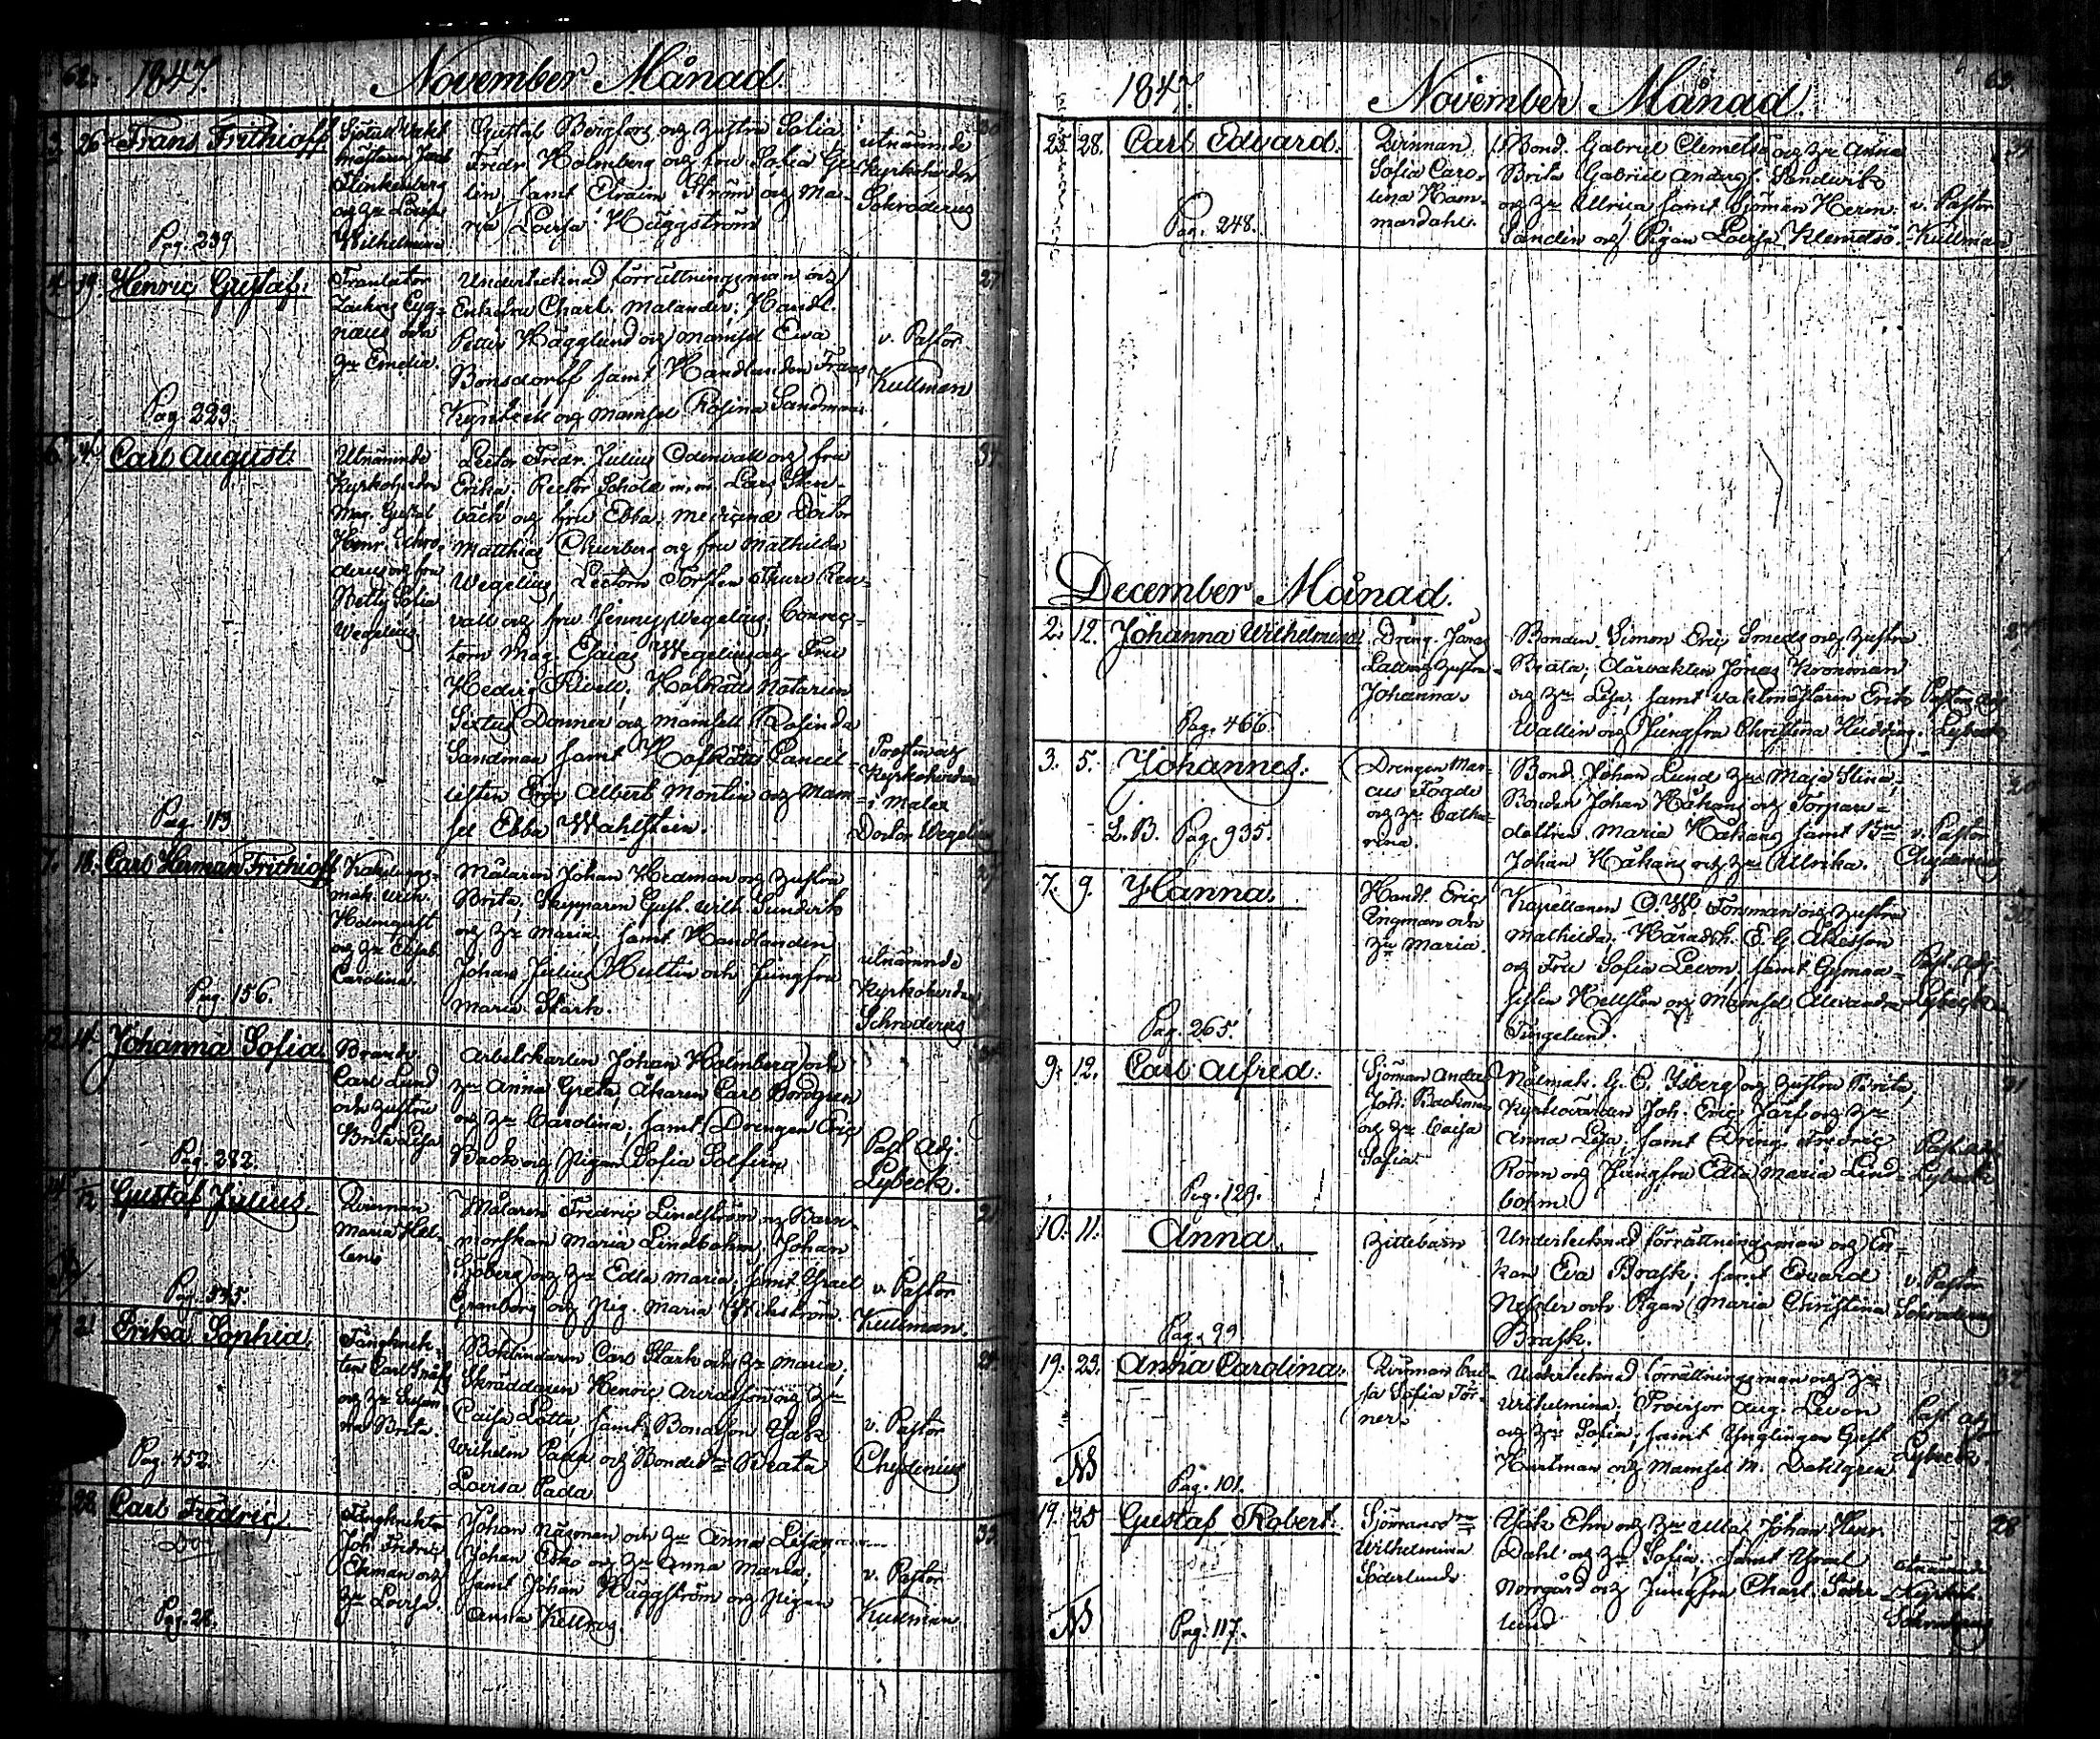 62. 1847. November Månad.
3. 26 Frans Frithioff
Sjötull Vakt
mästaren Jacob
Flinkenberg
och Hu Lovisa
Wilhelmina
Pag. 239
Gustaf Bergfors och hustru Sofia
Fredr. Holmberg och fru Sofia
samt Efraim Ström och Ma-
ria Lovisa Häggström
utnämnde
Kyrkoherden
Schroderus
4. 19. Henric Gustaf.
Translator
Zachris Cyg-
næus och
Hu Emelia.
Pag. 223.
Undertecknad förrättningsman och
Enkefru Charl. Malander; Handl.
Petter Hägglund och Mamsel Ewa
Bonsdorff samt Handlanden Frans
och Mamsel Rosina Sandman.
v. Pastor
Kullman
27
6. Carl August.
Utnämnde
Kyrkoherden
Mag. Gustaf
Henr. Schro-
derus och fru
Betty Sofia
Wegelius.
Pag. 113
Lector Fredr. Julius Odenvall och fru
Erika; Rector Scholæ m.m. Lars Sten-
bäck och fru Ebba; Medicinæ Doctor
Matthias Churberg och fru Mathilda
Wegelius; Lectorn Torsten Thure Ren-
vall och fru Jenny Wegelius; Conrec-
torn Mag. Esaias Wegelius och Fru
Hedvig Rivell; Hofrätts Notarien
Sextus Donner och Mamsell Rosinda
Sandman samt Hofrätts Cancel-
listen Eric Albert Montin och Mam-
sel Ebba Wahlstein.
Prosten och
Kyrkoherden
i Malax
Doctor Wegelius
7. 18. Carl Herman Frithioff
Kakelugns-
mak. Wilh.
Holmqvist
och Hu Elisab.
Carolina.
Pag. 156.
Målaren Johan Hedman och hustru
Brita; Skepparen Gust. Wilh. Sundvik
och Hu Maria; samt Handlanden
Johan Julius Hultin och Jungfru
Maria Stark.
utnämnde
Kyrkoherden
Schroderus
14. Johanna Sofia.
Carl Lund
och hustru
Brita Lisa
Pag. 282.
Arbetskarlen Johan Holmberg och
Hu Anna Greta, Åkaren Carl Nordgren
och Hu Carolina, samt Drengen Eric
Back och Pigan Sofia Solfirn
Past. Adj.
Lybeck.
12 Gustaf Julius.
Qvinnan
Maria Hel-
lens
Målaren Fredric Lindström och Barn-
morskan Maria Lindbohm; Johan
Sjöberg och Hu Edla Maria; samt Israel
Granberg och Pig. Maria Wikström.
v. Pastor
Kullman.
21 Erika Sophia.
Fångknek-
ten Carl
och Hu Susan-
na Brita.
Pag. 452.
Bokbindaren Carl Stark och Hu Maria;
Skräddaren Henric Arvidsson och Hu
Caisa Lotta, samt Bondeson Isak
Wilhelm Pada och Bonded:r Beata
Lovisa Pada.
v. Pastor
Chydenius
22. Carl Fredric
Död
Fångknekten
Joh. Fredric
Ekman och
Hu Lovisa.
Pag. 28.
Johan Näsman och Hu Anna Lisa,
Johan Esko och Hu Anna Maria;
samt Johan Häggström och Pigan
Anna Kellros.
v. Pastor
Kullman.
1847. November Månad. 63
25. 28. Carl Edvard.
Qvinnan
Sofia Caro-
lina Ham-
mardahl.
Pag. 248.
Bond. Gabriel Clemetsö och Hu Anna
Brita Gabriel Anders. Sandvik
och Hu Ullrica samt Sjöman Herm.
Sandin och Pigan Lovisa Klemetsö.
v. Pastor
Kullman
December Månad.
2. 12. Johanna Wilhelmina
Dreng. Jonas
Ladvig hustru
Johanna.
Pag. 466.
Bonden Simon Eric Smeds och hustru
Beata; Jonas Kronman
och Hu Lisa, samt Vaktmästaren Erik
Wallin och Jungfru Christina
Past. Adj.
Lybeck
3. 5. Johannes.
Drengen Mar-
cus Fogde
och Hu Catha-
rina.
L. B. Pag. 935.
Bond. Johan Lund Hu Maja Stina;
Bonden Johan Håkans och Torpare-
dottren Maria Håkans samt B:n
Johan Håkans och Hu Ullrika.
v. Pastor
Chydenius
7. 9. Hanna.
Handl. Eric
Engman och
Hu Maria.
Pag. 265.
Kapellanen O. W. Forsman och hustru
Mathilda; Häradsh. E. G. Åkesson
och Fru Sofia Levon; samt Gymna-
sisten Hellsten och Mamsel Alexandra
Tingelund.
Past. Adj.
Lybeck.
9. 12. Carl Alfred.
Sjöman Anders
Joh. Backman
och Hu Caisa
Sofia.
Pag. 129.
Nålmak. G. E. Ysberg och hustru Brita,
Kyrkovärden Joh. Eric Färs och Hu
Anna Lisa; samt Dreng. Fredric
Rönn och Jungfru Edla Maria Lind-
bohm.
Past. Adj.
Lybeck
31
10. 11. Anna.
Hittebarn
Pag. 99
Undertecknad förrättningsman och En-
kan Eva Brask; samt Edvard
Nessler och Pigan Maria Christina
Brask.
v. Pastor
Schroderus
19. 23. Anna Carolina.
Qvinnan Cai-
sa Sofia Tör-
ner.
NB
Pag. 101.
Undertecknad förrättningsman och Hu
Wilhelmina; Provisor Aug. Levon
och Hu Sofia; samt Ynglingen Gust.
Hartman och Mamsel M. Dahlgren
Past. Adj.
Lybeck.
32
19. 25 Gustaf Robert.
Sjömansd:r
Wilhelmina
Söderlund
NB
Pag. 117.
Isak Ehn och Hu Ulla; Johan Henr.
Dahl och Hu Sofia; samt Israel
Norrgård och Jungfru Charl. Söder-
lund
utnämnde
Kyrkoh.
28